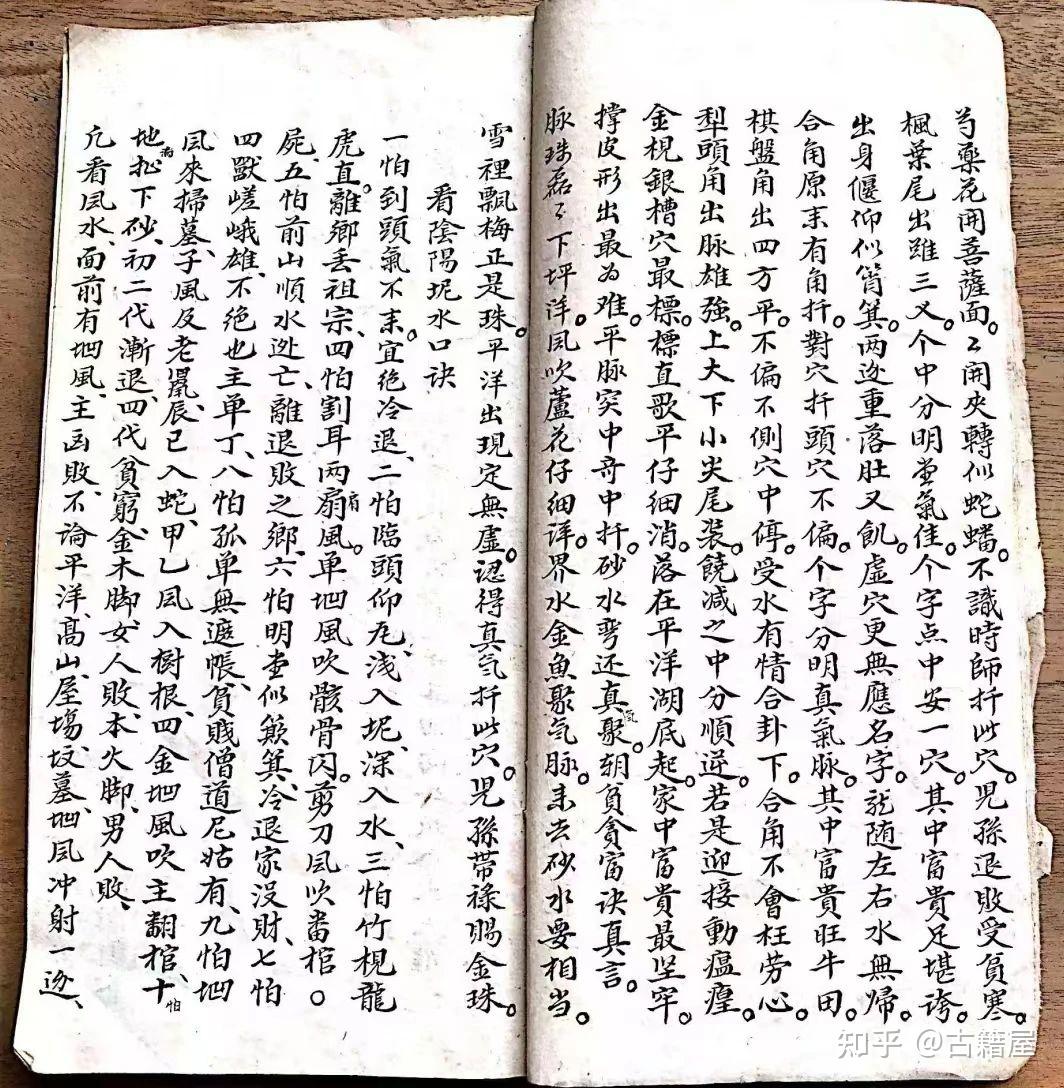 芍藥花開菩薩面。〻開夾轉似蛇蟠。不識時師扦此穴。兒孫退敗受貧寒。
楓葉尾出雖三义。个中分明堂氣佳。个字点中安一穴。其中富貴足堪誇。
出身偃仰似筲箕。两边重落肚又飢。虛穴更無應名字。龍随左右水無帰。
合角原来有角扦。對穴扦頭穴不偏。个字分明真氣脉。其中富貴旺牛田。
棋盤角出四方平。不偏不側穴中停。受水有情合卦下。合角不會枉劳心。
犁頭角出脉雄強。上大下小尖尾裝。饒减之中分順逆。若是迎接動瘟瘽。
金梘銀槽穴最標。標直歌平仔細消。落在平洋湖底起。家中富貴最坚牢。
撑皮形出最为难。平脉突中奇中扦。砂水弯还真氣聚。朝貧貪富诀真言。
脉珠磊〻下坪洋。风吹蘆花仔细详。界水金魚聚气脉。来去砂水要相当。
雪裡飄梅正是珠。平洋出現定無虛。認得真气扦此穴。児孫带禄賜金珠。
看陰陽坭水口诀
一怕到頭氣不来。宜绝冷退、二怕臨頭仰尢、浅入坭、深入水、三怕竹梘龍
虎直。離鄉丢祖宗、四怕割耳两扇肩風。单坳風吹骸骨闪。剪刀风吹畨棺。
屍、五怕前山順水迯亡、離退敗之鄉、六怕明堂似簸箕、冷退家没財、七怕
四獸嵯峨雄、不绝也主单丁、八怕孤单無遮帳、貧賤僧道尼姑有、九怕坳
风來掃墓、子風及老鼠、辰巳入蛇、甲乙风入樹根、四金坳風吹主翻棺、十怕
地扯下砂、初二代漸退、四代貧窮、金木脚、女人敗、本火脚、男人敗、
凢看风水、面前有坳風、主凶敗、不論平洋、高山、屋塲、坟墓、坳风冲射一边、
知乎 @古籍屋